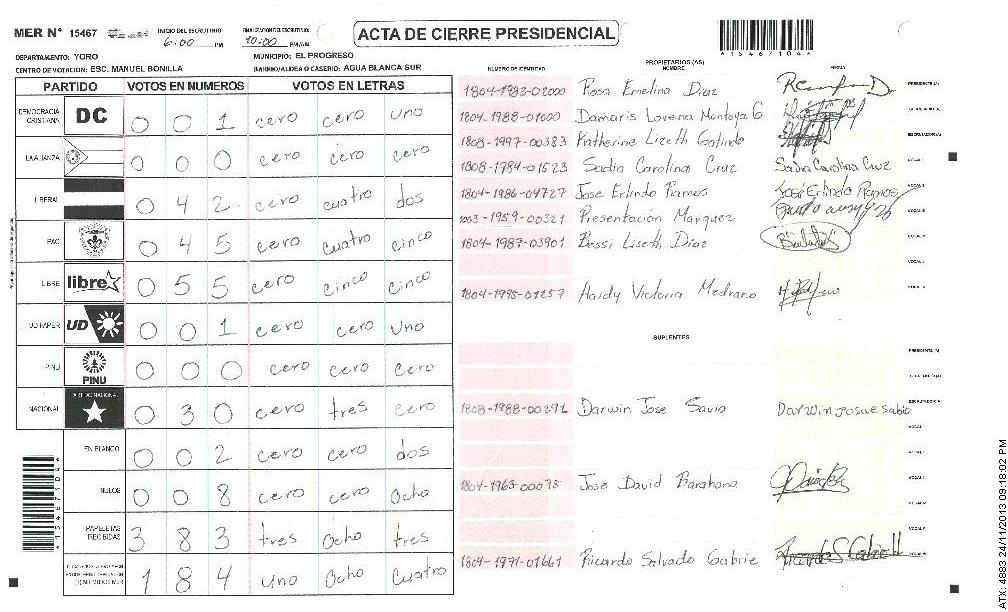 MER N° 15467
INICIO DEL ESCRUTINIO
6:00 PM
FINALIZACION DEL ESCRUTINIO:
10:00 PM/A/M
ACTA DE CIERRE PRESIDENCIAL
*1546710 4*
DEPARTAMENTO: YORO
MUNICIPIO: EL PROGRESO
CENTRO DE VOTACION: ESC. MANUEL BONILLA
BARRIO/ALDEA O CASERIO: AGUA BLANCA SUR
PARTIDO VOTOS EN NUMEROS VOTOS EN LETRAS
DEMOCRACIA CRISTIANA DC 0 0 1 cero cero uno
LA ALIANZA 0 0 0 cero cero cero
LIBERAL 0 4 2 cero cuatro dos
PAC 0 4 5 cero cuatro cinco
LIBRE libre 0 5 5 cero cinco cinco
UD-FAPER UD 0 0 1 cero cero uno
PINU PINU 0 0 0 cero cero cero
NACIONAL PARTIDO NACIONAL 0 3 0 cero tres cero
EN BLANCO 0 0 2 cero cero dos
NULOS 0 0 8 cero cero Ocho
PAPELETAS RECIBIDAS 3 8 3 tres Ocho tres
1 8 4 uno Ocho cuatro
NUMERO DE IDENTIDAD PROPIETARIOS (AS) NOMBRE FIRMA
1804-1983-02000 Rosa Emelina Diaz PRESIDENTE (A)
1804-1988-01000 Damaris Lorena Montoya G SECRETARIO (A)
1808-1997-00383 Katherine Lizeth Galindo ESCRUTADOR (A)
1808-1984-01523 Sadia Carolina Cruz Sadia Carolina Cruz VOCAL I
1804-1986-04727 Jose Erlindo Ramos Jose Erlindo Ramos VOCAL II
1003-1959-00321 Presentación Marquez VOCAL III
1804-1987-03901 Bessi Liseth Diaz
1804-1995-01257 Haidy Victoria Medrano
SUPLENTES
PRESIDENTE (A)
SECRETARIO (A)
1808-1988-00291 Darwin Jose Savio Darwin josue sabio ESCRUTADOR (A)
VOCAL I
1804-1963-00075 Jose David Barahona
1804-1971-01661 Ricardo Salvado Gabrie
ATX: 4883 24/11/2013 09:18:02 PM